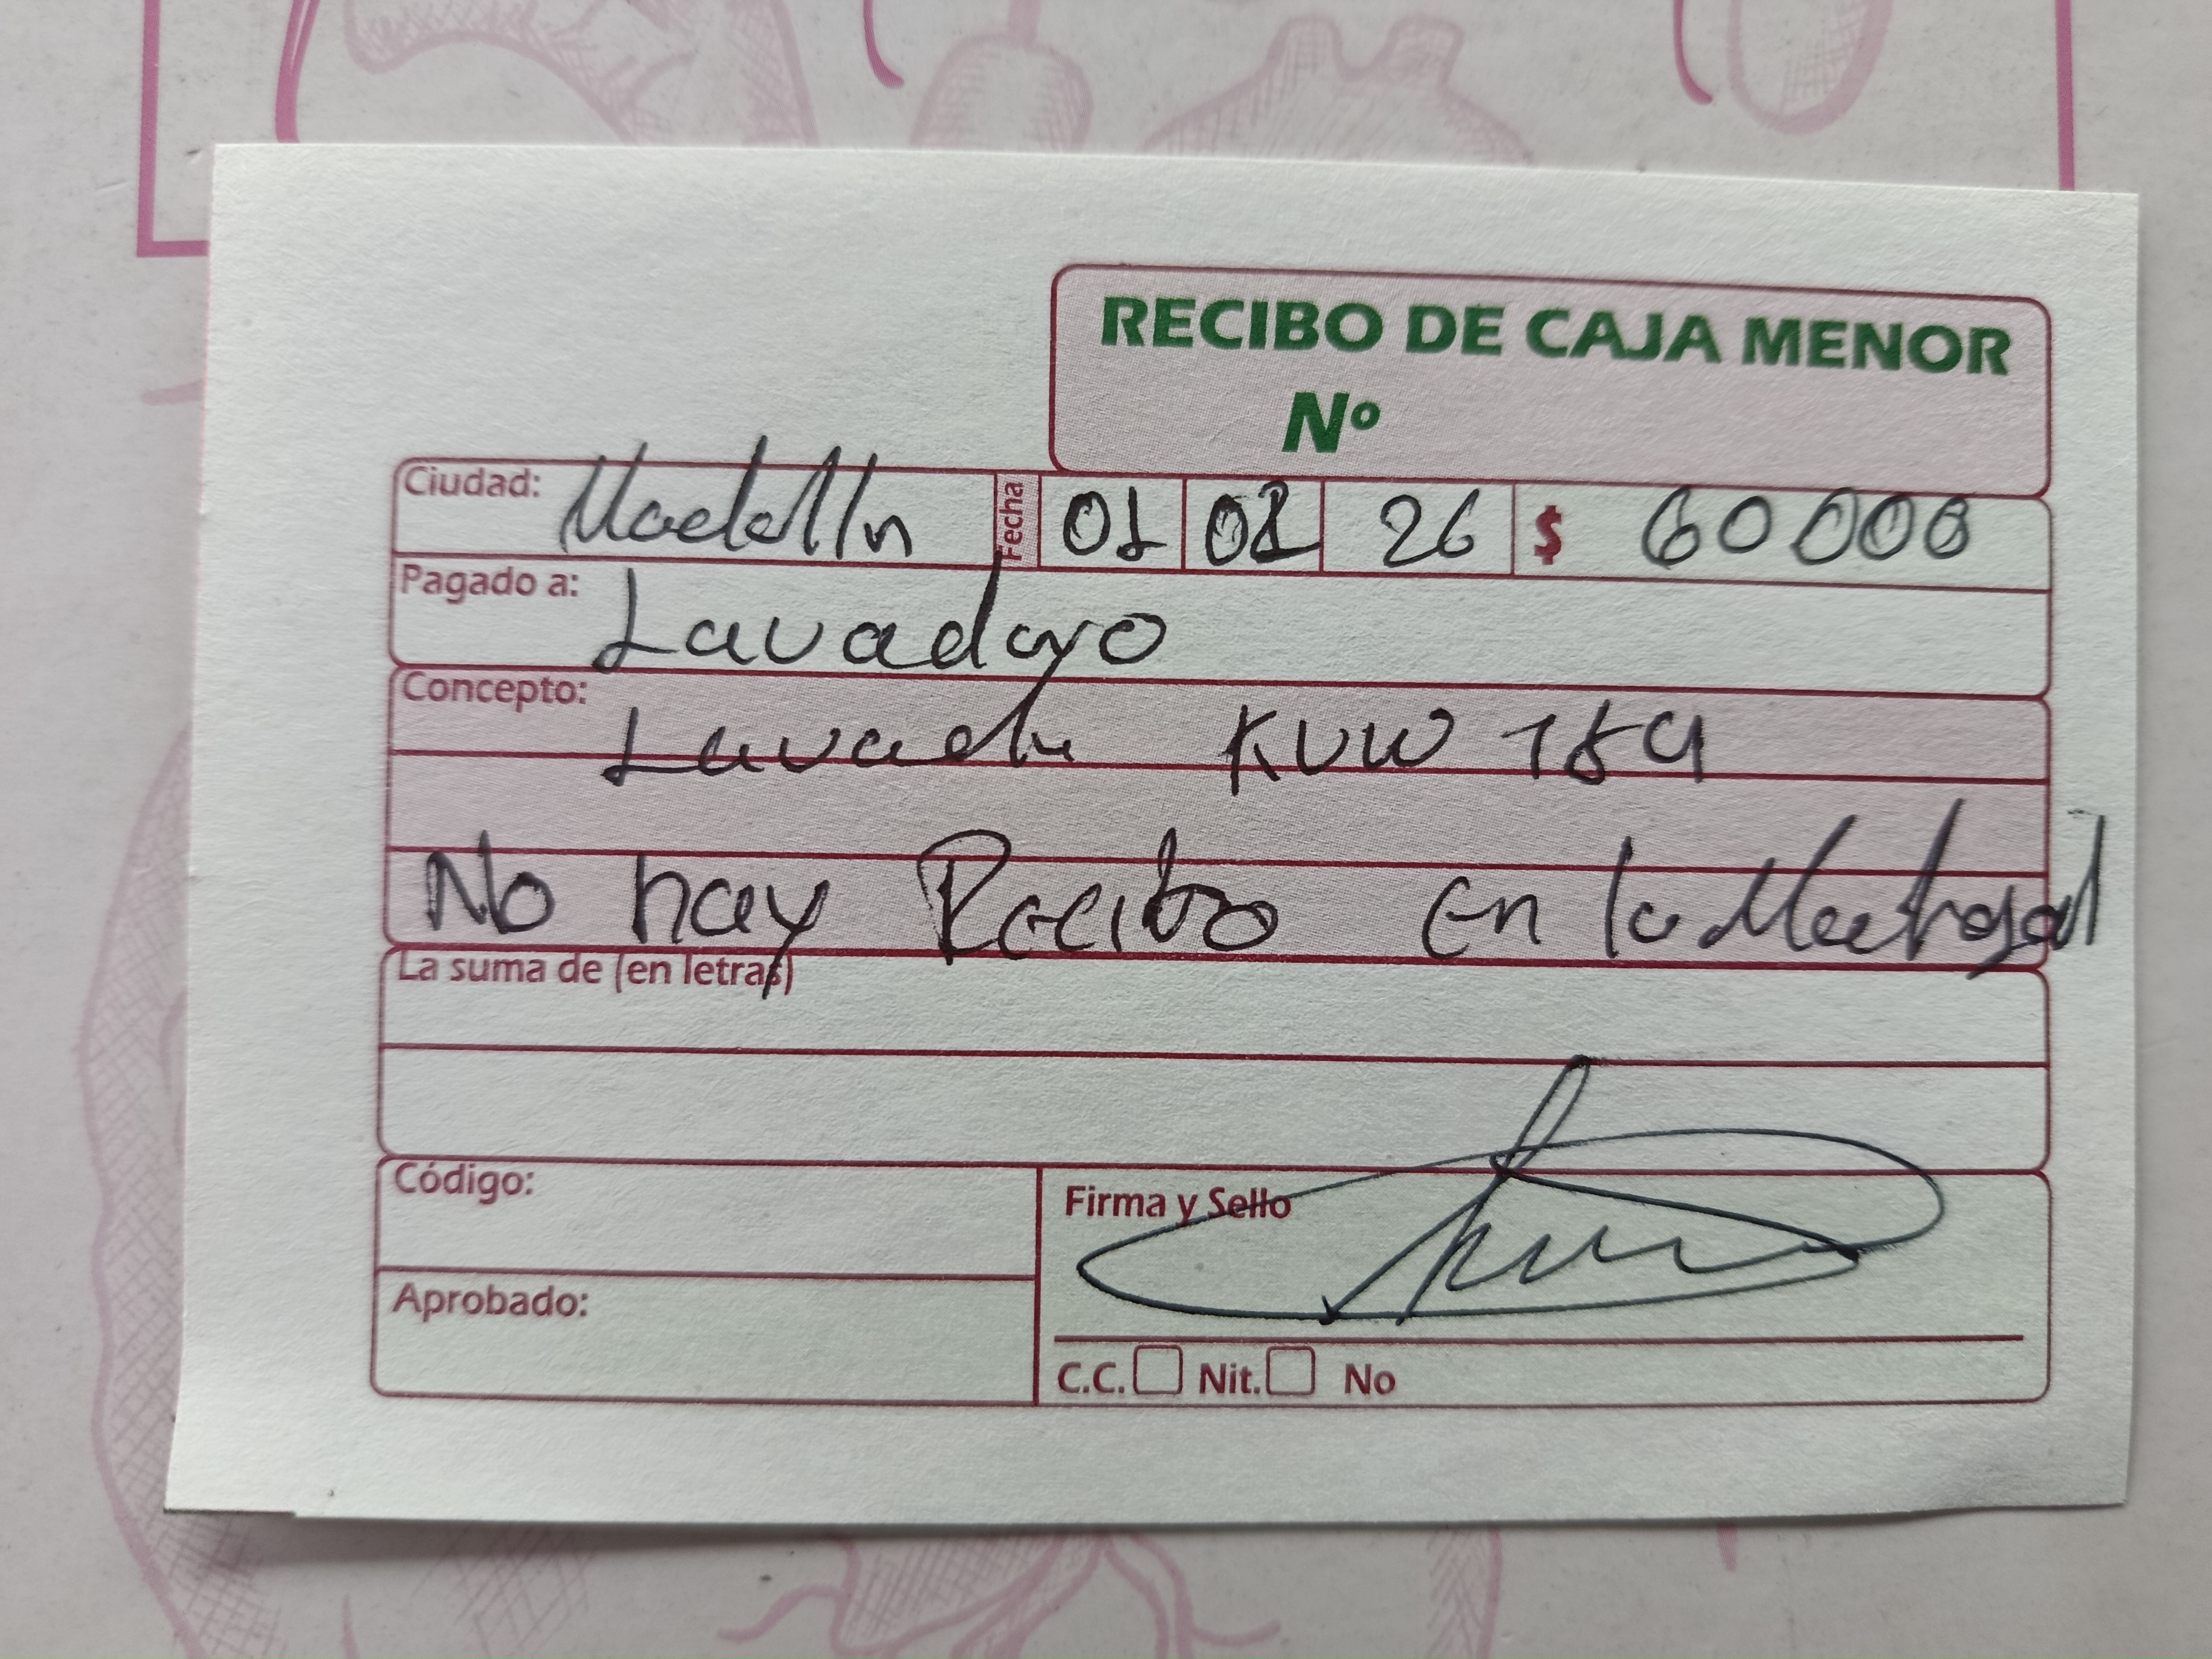 RECIBO DE CAJA MENOR
Nº
Ciudad: Medellin Fecha 01 26 $ 60000
Pagado a: Lavadero
Concepto: Lavada KUW
No hay Recibo en la
La suma de (en letras)
Código:
Firma y Sello
Aprobado:
C.C. Nit. No